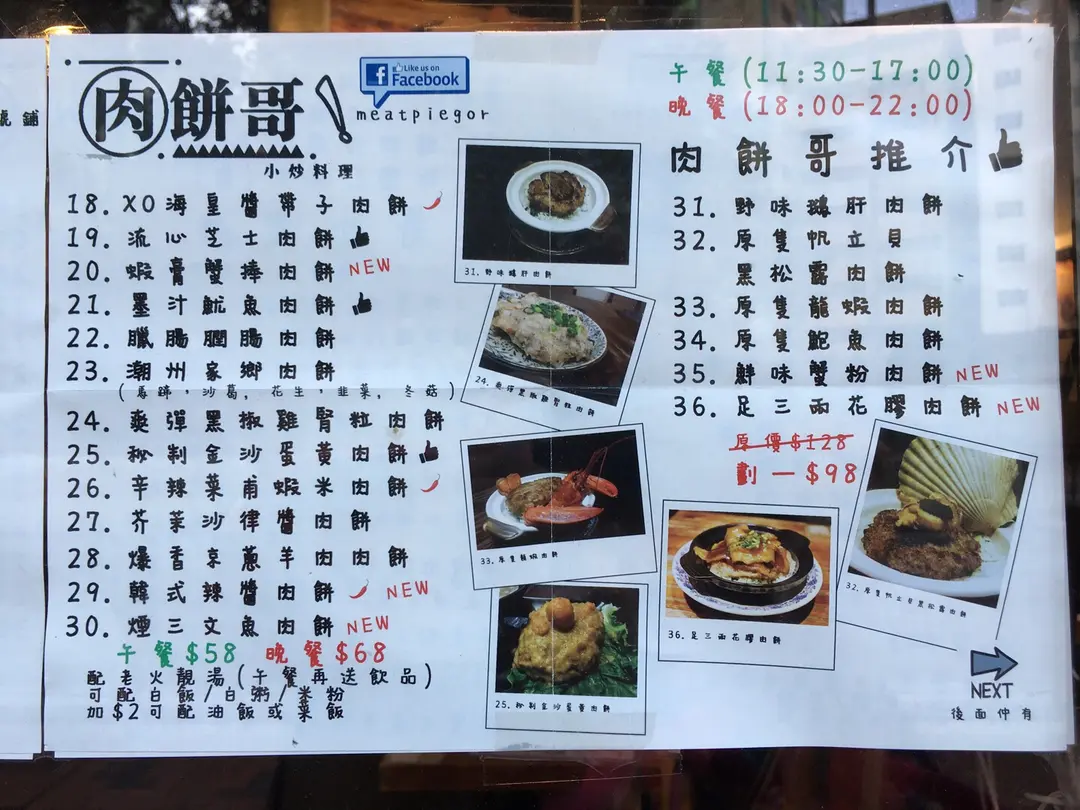 鋪
肉餅哥!
Like us on
Facebook
meatpiegor
小炒料理
18. XO海皇醬帶子肉餅
19. 流心芝士肉餅
20. 蝦膏蟹捧肉餅 NEW
21. 墨汁魷魚肉餅
22. 臘腸膶腸肉餅
23. 潮州家鄉肉餅
(馬蹄，沙葛，花生，韭菜，冬菇)
24. 爽彈黑椒雞腎粒肉餅
25. 秘制金沙蛋黃肉餅
26. 辛辣菜甫蝦米肉餅
27. 芥茉沙律醬肉餅
28. 爆香京蔥羊肉肉餅
29. 韓式辣醬肉餅 NEW
30. 煙三文魚肉餅 NEW
午餐$58 晚餐$68
配老火靚湯(午餐再送飲品)
可配白飯/白粥/米粉
加$2可配油飯或菜飯
31. 野味鵝肝肉餅
24. 爽彈黑椒雞腎粒肉餅
33. 原隻龍蝦肉餅
25. 秘制金沙蛋黃肉餅
午餐(11:30-17:00)
晚餐(18:00-22:00)
肉餅哥推介
31. 野味鵝肝肉餅
32. 原隻帆立貝
黑松露肉餅
33. 原隻龍蝦肉餅
34. 原隻鮑魚肉餅
35. 鮮味蟹粉肉餅 NEW
36. 足三兩花膠肉餅 NEW
原價$128
劃一$98
36. 足三兩花膠肉餅
32. 原隻帆立貝黑松露肉餅
NEXT
後面仲有